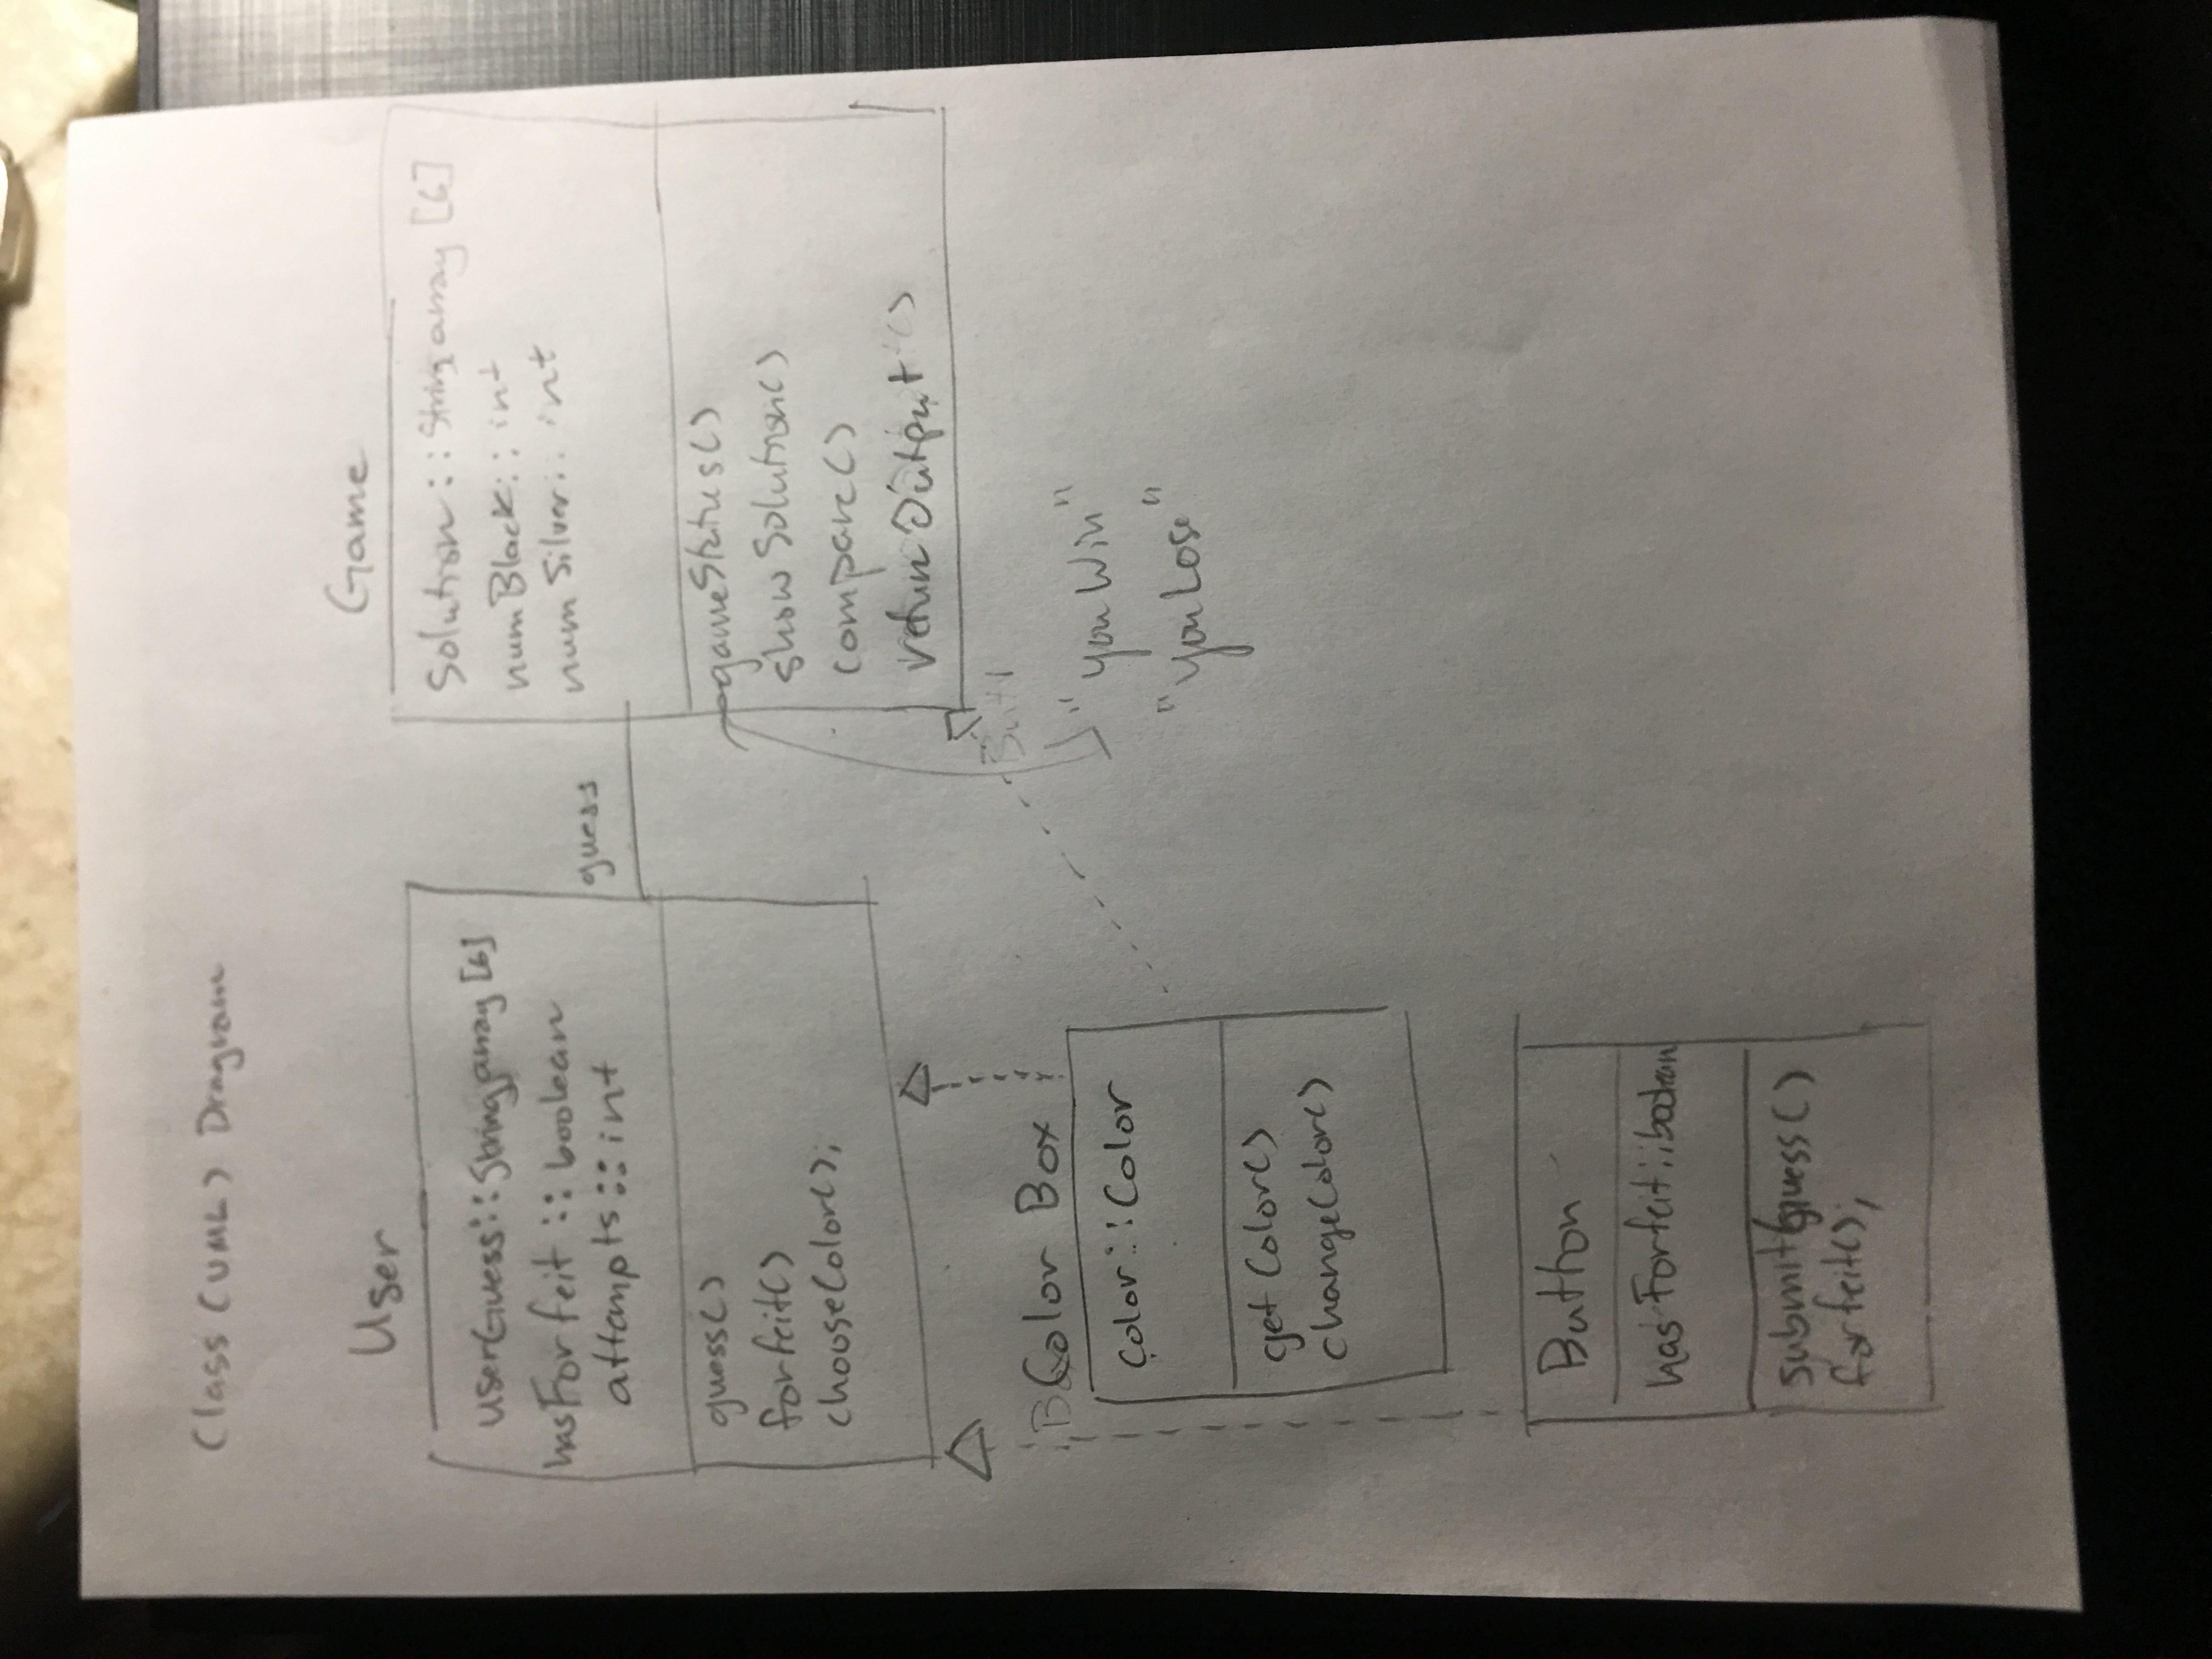 Class (UML) Diagram
User
userGuess::String array [6]
hasForfeit :: boolean
attempts :: int
guess()
forfeit()
chooseColor();
guess
Game
Solution :: String array [6]
numBlack :: int
numSilver :: int
gameStatus()
showSolution()
compare()
return Output ()
"you Win"
"you Lose"
Color Box
color::Color
getColor()
changeColor()
Button
hasForfeit::boolean
submitGuess()
forfeit();